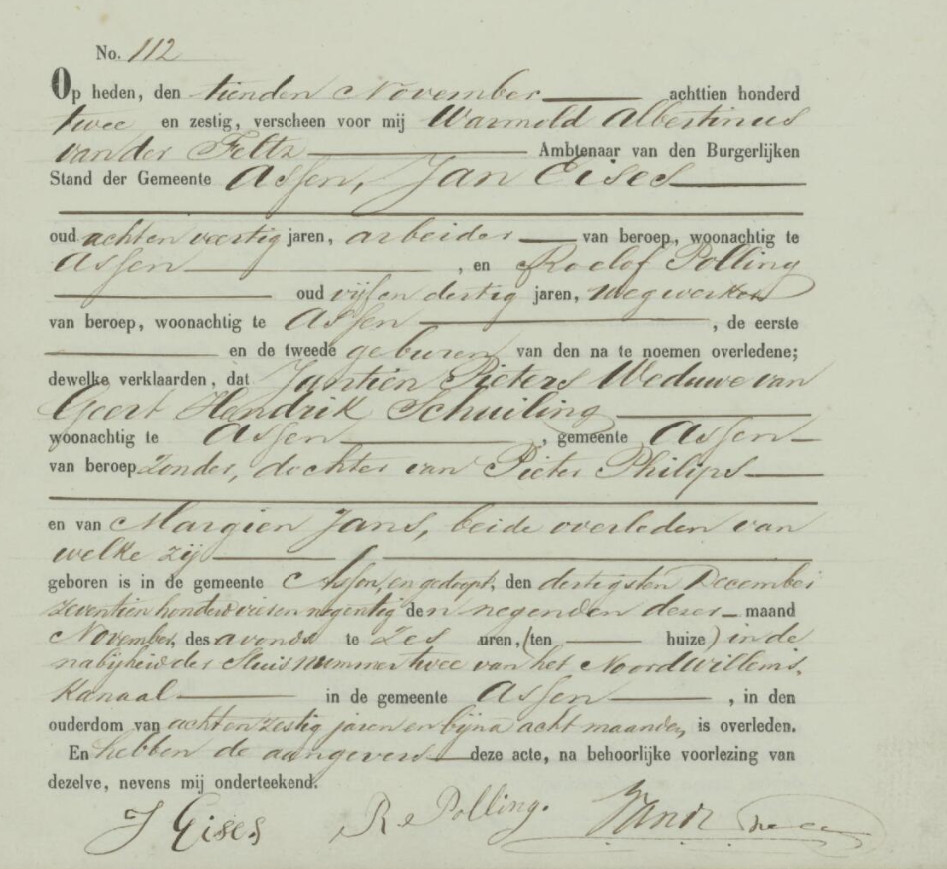 No. 112
Op heden, den tienden November achttien honderd
twee en zestig, verscheen voor mij Warmold Albertinus
van der Feltz Ambtenaar van den Burgerlijken
Stand der Gemeente Assen, Jan Eises
oud achten veertig jaren, arbeider van beroep, woonachtig te
Assen , en Roelof Polling
oud vijf en dertig jaren, wegwerker
van beroep, woonachtig te Assen , de eerste
en de tweede geburen van den na te noemen overledene;
dewelke verklaarden, dat Jantien Pieters Weduwe van
Geert Hendrik Schuiling
woonachtig te Assen , gemeente Assen
van beroep zonder, dochter van Pieter Philips
en van Margien Jans, beide overleden van
welke zij
geboren is in de gemeente Assen, en gedoopt, den dertigsten December
zeventien honderd en negentig den negenden dezer maand
November, des avonds te zes uren, (ten huize) in de
nabijheid der Sluis nummer twee van het Noord Willems.
Kanaal in de gemeente Assen , in den
ouderdom van acht en zestig jaren en bijna acht maanden, is overleden.
En hebben de aangevers deze acte, na behoorlijke voorlezing van
dezelve, nevens mij onderteekend.
J Eises R Polling.